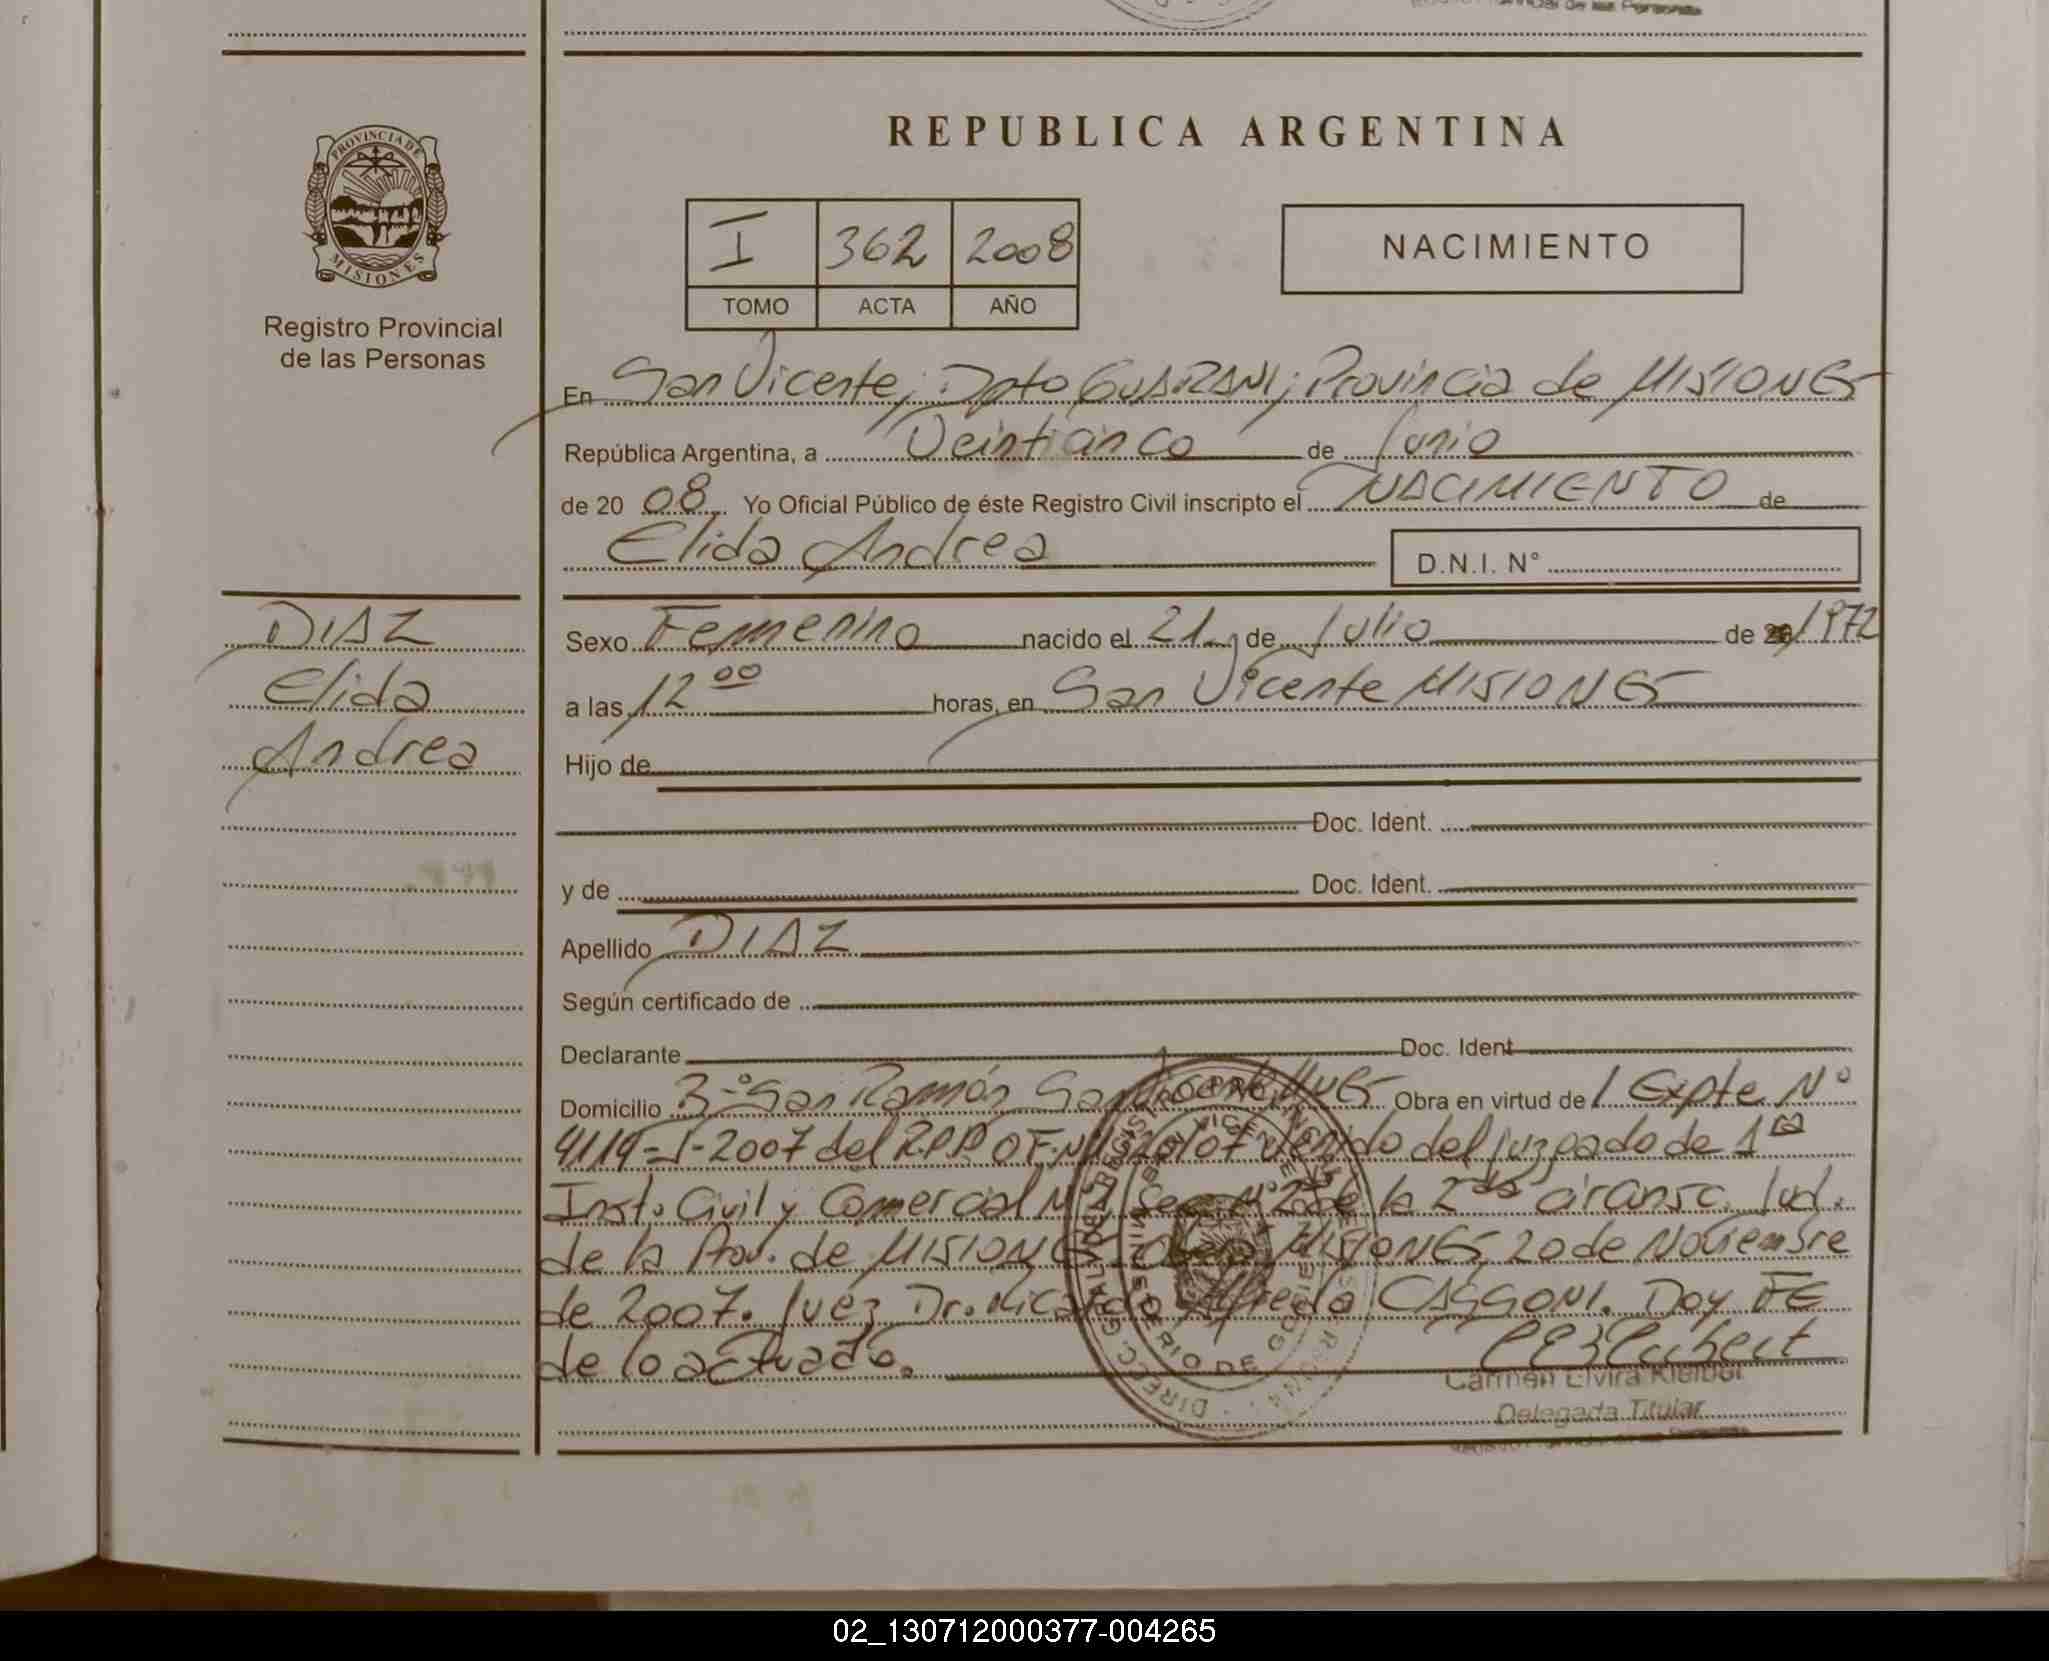 REPUBLICA ARGENTINA
PROVINCIA DE
MISIONES
Registro Provincial
de las Personas
I 362 2008
TOMO ACTA AÑO
NACIMIENTO
En San Vicente, Dpto GUARANI, Provincia de MISIONES
República Argentina, a Veinticinco de Junio
de 20 08 Yo Oficial Público de éste Registro Civil inscripto el NACIMIENTO de
Elida Andrea D.N.I. N°
DIAZ
Elida
Andrea
Sexo Femenino nacido el 21 de Julio de 1972
a las 12 00 horas, en San Vicente MISIONES
Hijo de
Doc. Ident.
y de Doc. Ident.
Apellido DIAZ
Según certificado de
Declarante Doc. Ident
Domicilio Bº San Ramón San Vicente Obra en virtud de Expte Nº
2007 del R.P.P. del Juzgado de 1ra
Inst. Civil y Comercial Sec. Nº de la 2da circunsc. Jud.
de la Prov. de MISIONES MISIONES, 20 de Noviembre
de 2007. Juez Dr. Ricardo Alfredo CASSONI. Doy FE
de lo actuado.
Carmen Elvira
Delegada Titular
02_130712000377-004265